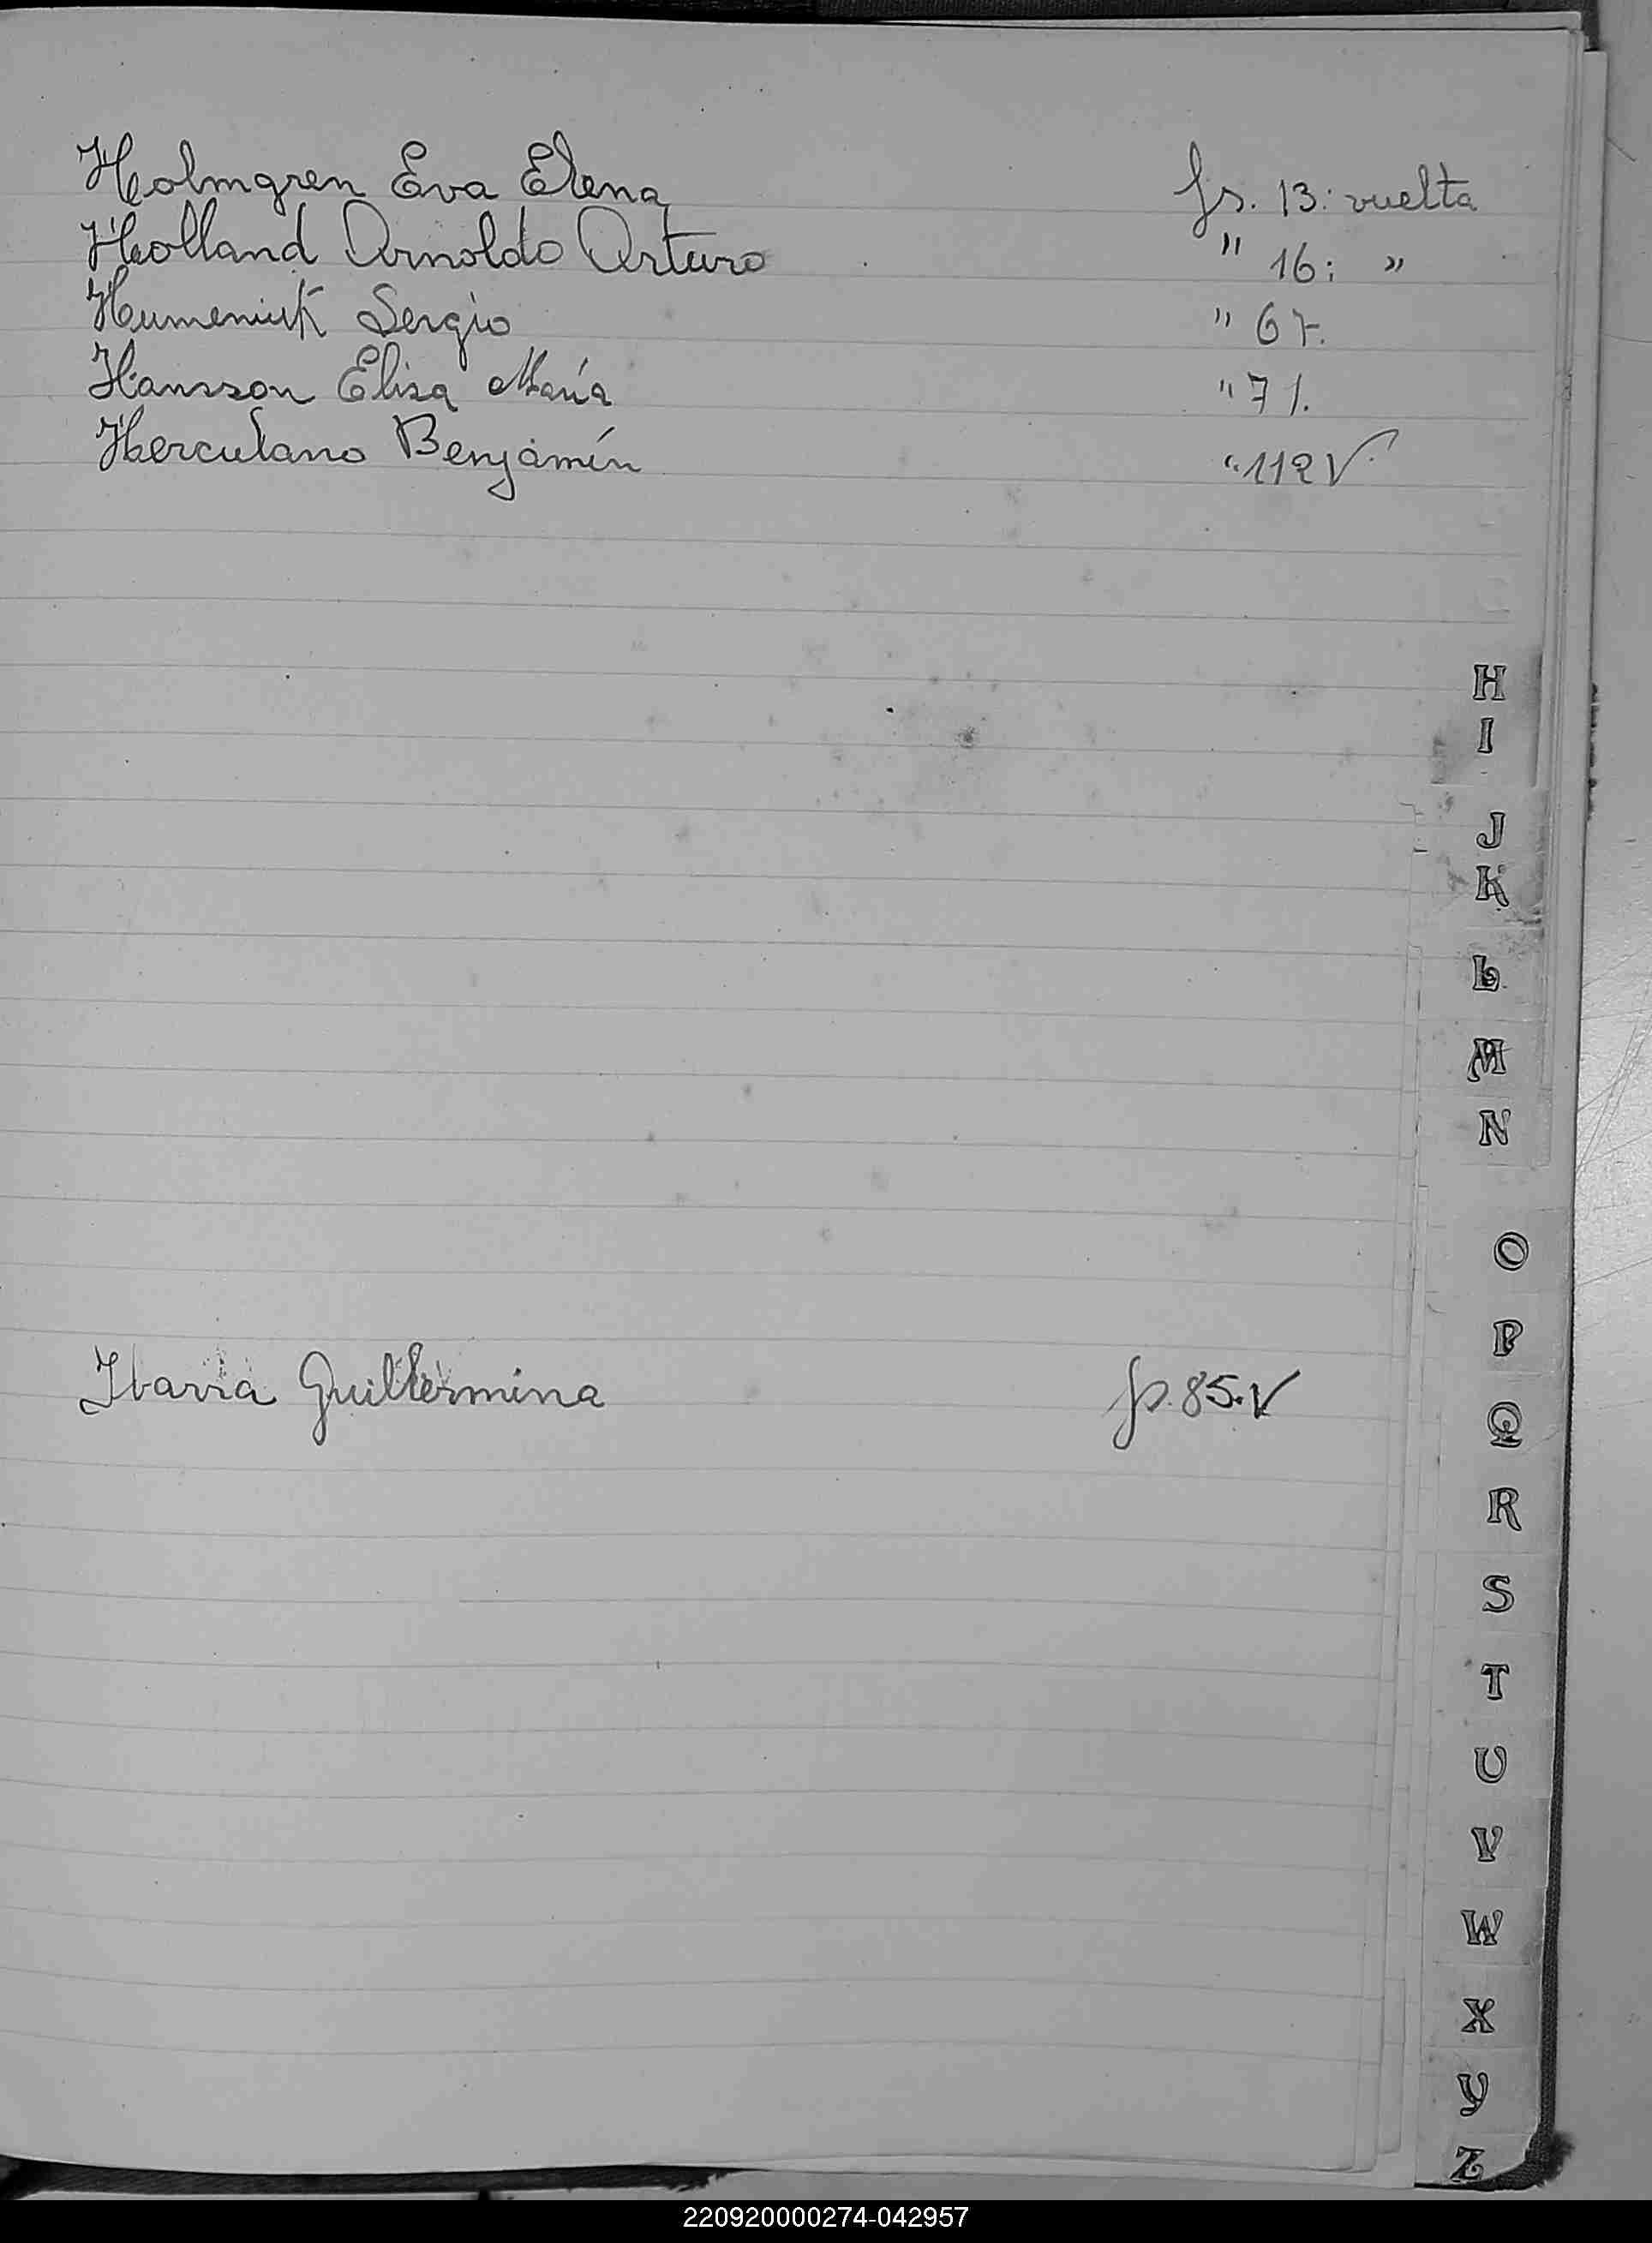 Holmgren Eva Elena fs. 13: vuelta
Holland Arnoldo Arturo " 16: "
Humeniuk Sergio " 67.
Hansson Elisa María " 71.
Herculano Benjamín " 112 V.
H
I
J
K
L
M
N
O
P
Ibarra Guillermina fs. 85. V
Q
R
S
T
U
V
W
X
Y
Z
220920000274-042957